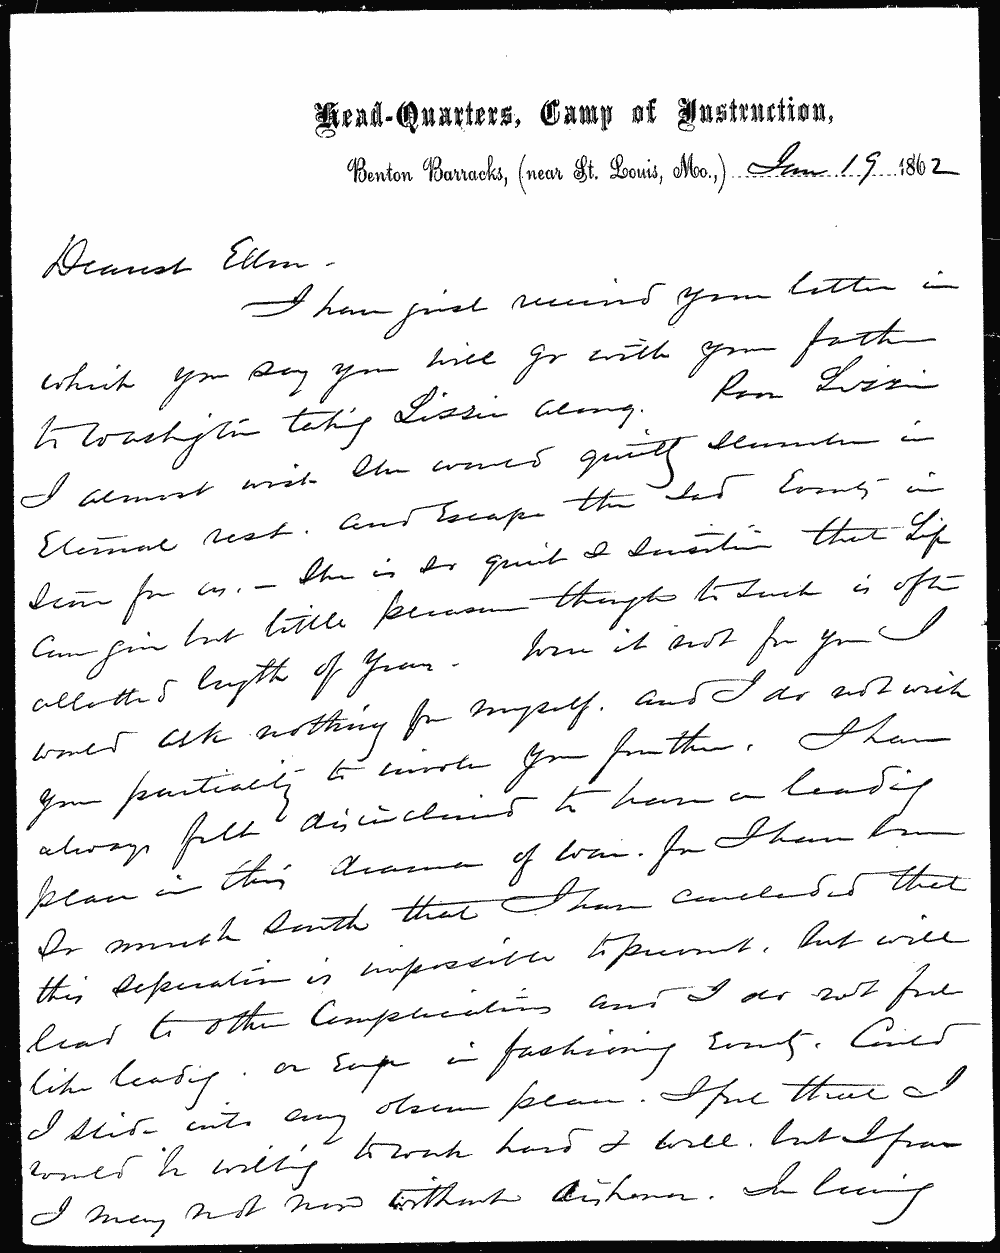 Head-Quarters, Camp of Instruction,
Benton Barracks, (near St. Louis, Mo.,) Jan 19 1862
Dearest Ellen -
I have just received your letter in
which you say you will go with your father
to Washington taking Lizzie along. Poor Lizzie
I almost wish she would quietly slumber in
Eternal rest. and Escape the sad Events in
store for us. - She is so quiet & sensitive that Life
can give but little pleasure though to such is often
allotted length of Years. Were it not for you I
would ask nothing for myself. and I do not wish
your partiality to involve you further. I have
always felt disinclined to have a leading
place in this drama of war. for I have been
so much South that I have concluded that
this separation is impossible to prevent. but will
lead to other Complications and I do not feel
like leading. or in fashioning Events. Could
I slide into any obscure place. I feel that I
would be willing to work hard & well. but I fear
I may not now without dishonor. In leaving